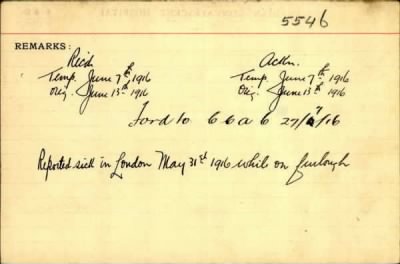 5546
REMARKS:
Recd. Ackn.
Temp. June 7th 1916 Temp. June 7th 1916
Orig. June 13th 1916 Orig. June 13th 1916
Ford to C C a C 27/7/16
Reported sick in London May 31st 1916 while on furlough